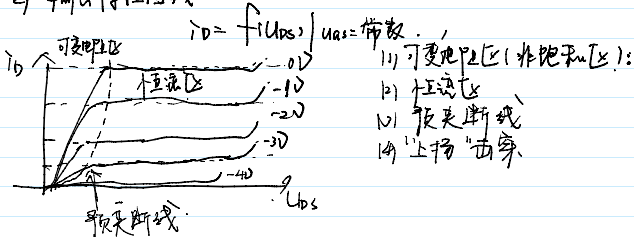 iD = f(uDS)|uGS=常数.
可变电阻区
iD
恒流区
-0V
-1V
-2V
-3V
-4V
uDS
预夹断线
(1) 可变电阻区(非饱和区):
(2) 恒流区
(3) 预夹断线
(4) "上扬"击穿